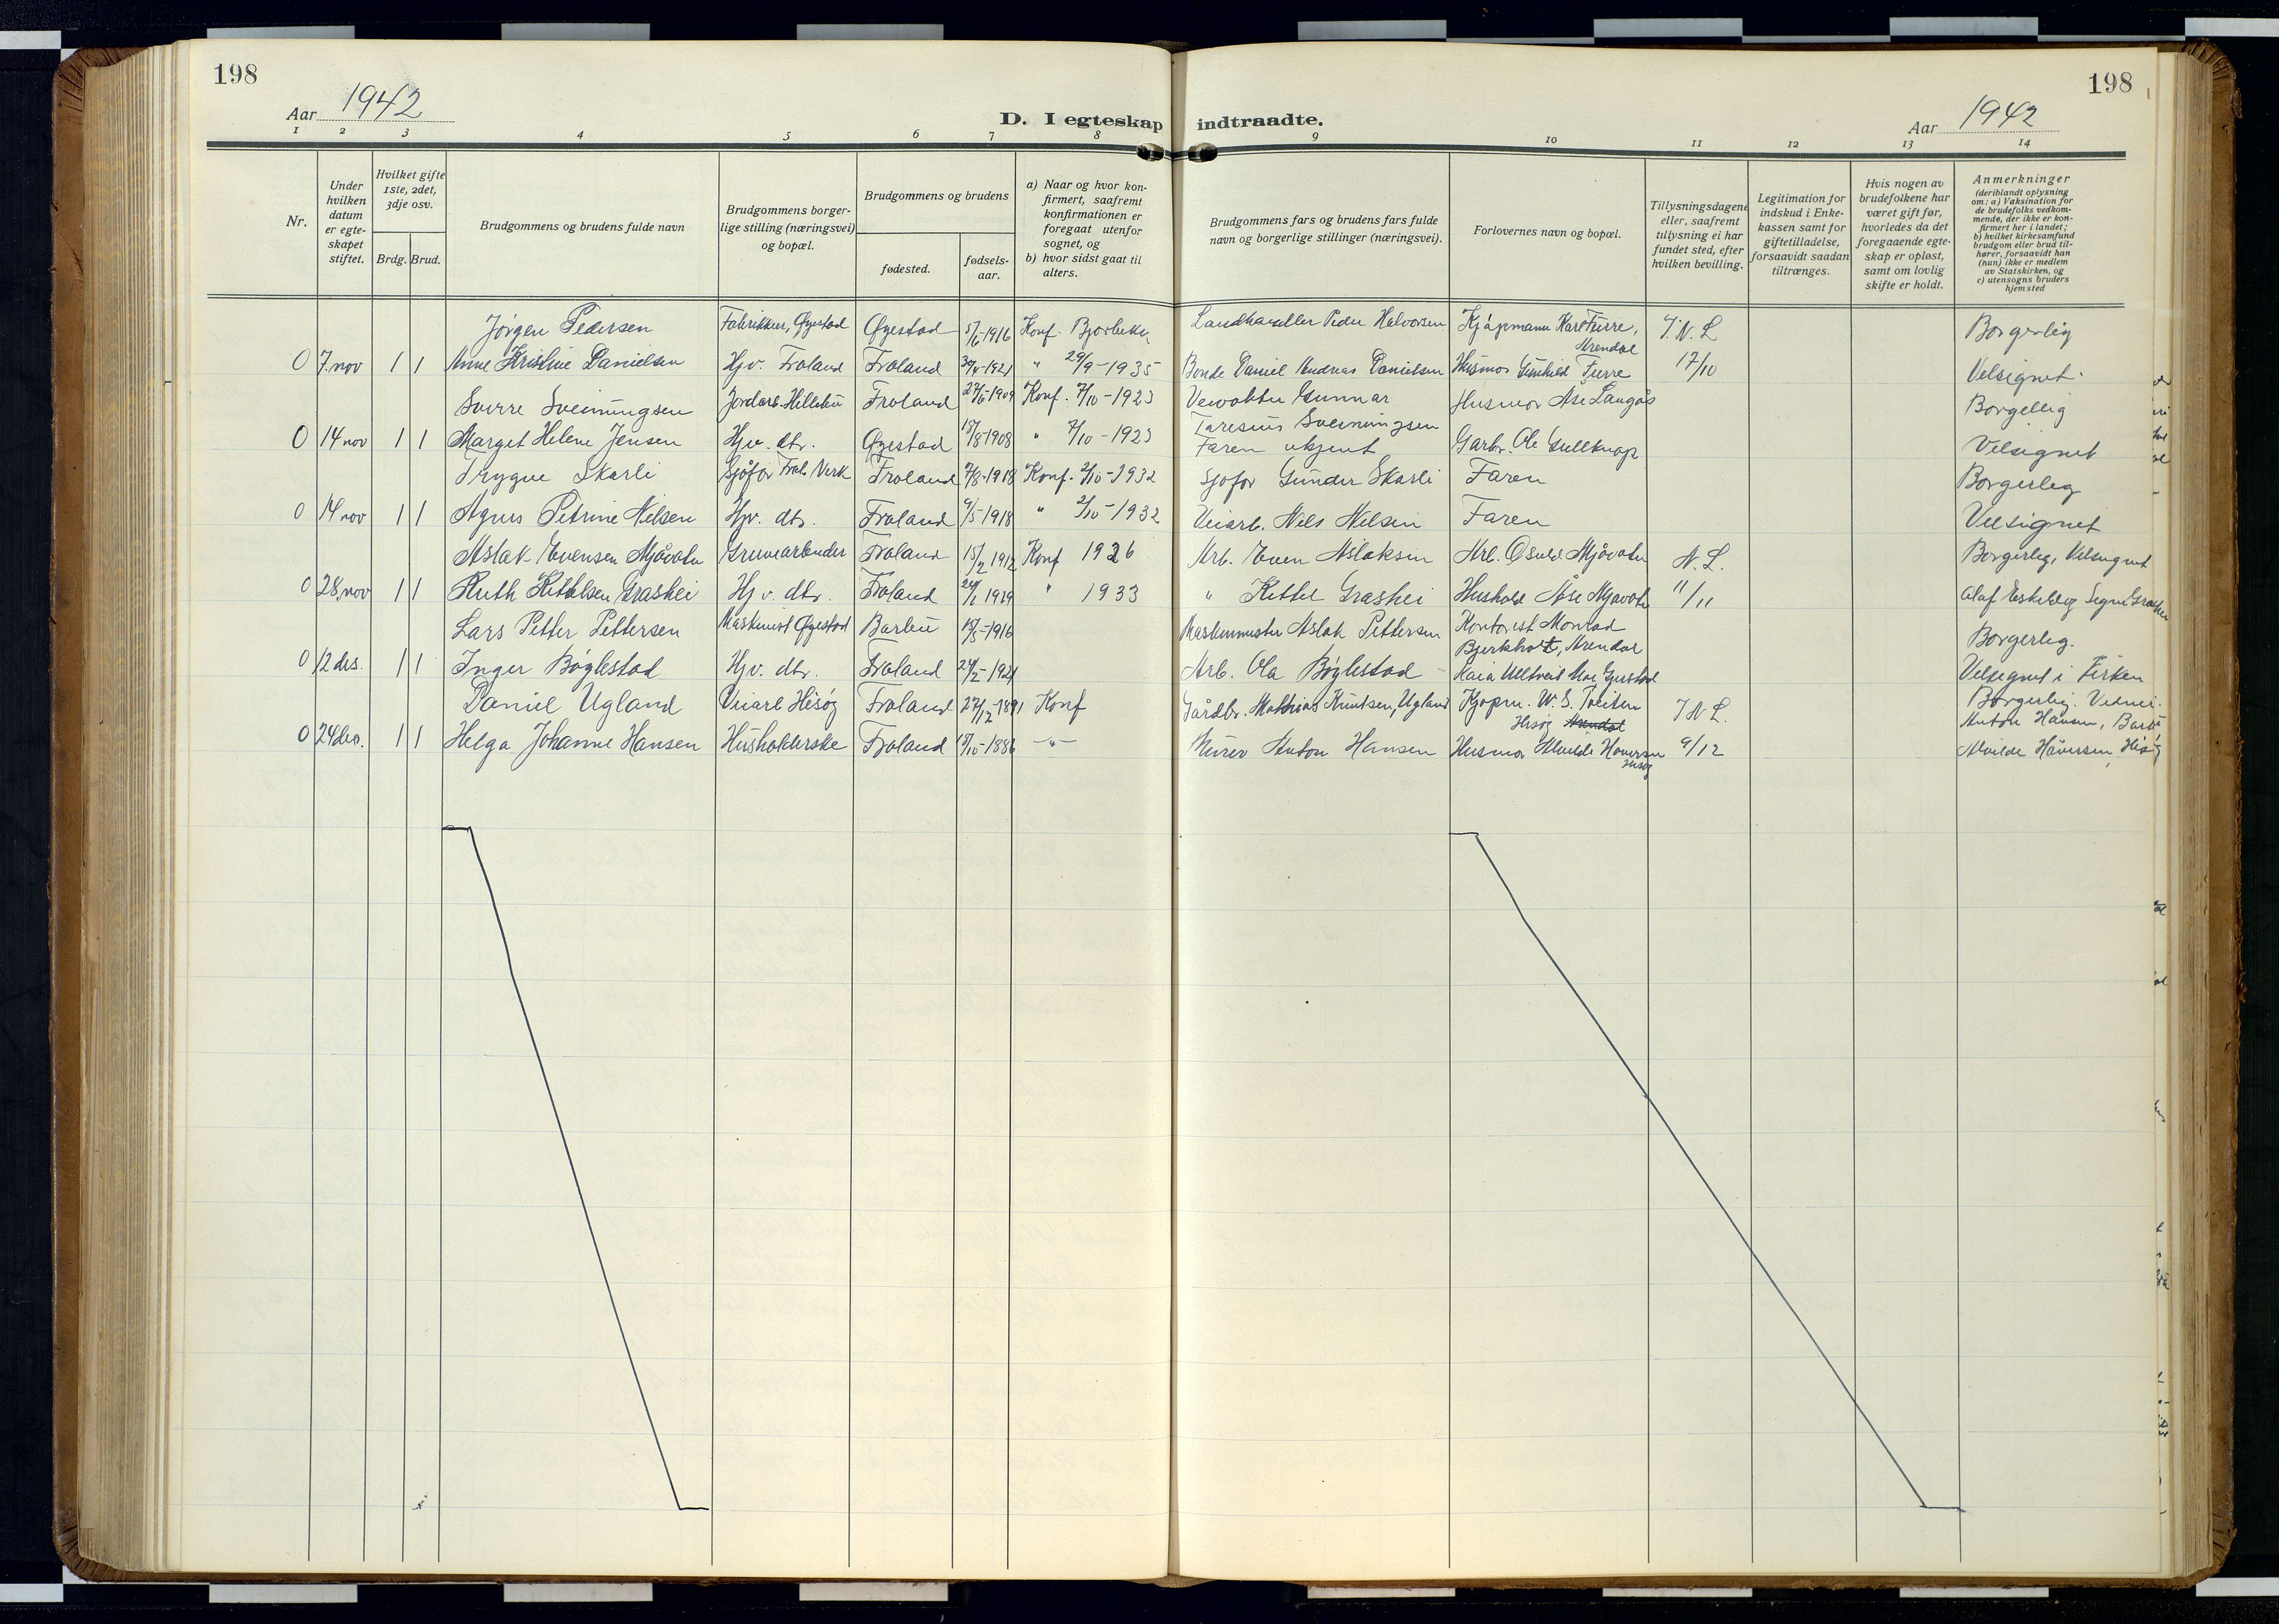 198
198
Aar 1942
D. I egteskap indtraadte.
Aar 1942
1 2 3 4 5 6 7 8 9 10 11 12 13 14
Nr.
Under hvilken datum er egte-skapet stiftet.
Hvilket gifte 1ste, 2det, 3dje osv.
Brdg. Brud.
Brudgommens og brudens fulde navn
Brudgommens borger-lige stilling (næringsvei) og bopæl.
Brudgommens og brudens
fødested.
fødsels-aar.
a) Naar og hvor kon-firmert, saafremt konfirmationen er foregaat utenfor sognet, og
b) hvor sidst gaat til alters.
Brudgommens fars og brudens fars fulde navn og borgerlige stillinger (næringsvei).
Forlovernes navn og bopæl.
Tillysningsdagene eller, saafremt tillysning ei har fundet sted, efter hvilken bevilling.
Legitimation for indskud i Enke-kassen samt for giftetilladelse, forsaavidt saadan tiltrænges.
Hvis nogen av brudefolkene har været gift før, hvorledes da det foregaaende egte-skap er opløst, samt om lovlig skifte er holdt.
Anmerkninger (deriblandt oplysning om: a) Vaksination for de brudefolks vedkom-mende, der ikke er kon-firmert her i landet; b) hvilket kirkesamfund brudgom eller brud til-hører, forsaavidt han (hun) ikke er medlem av Statskirken, og c) utensogns bruders hjemsted
Jörgen Pedersen Øyestad 5/6-1916 Konf. Landhandler Peder Halvorsen Kjøpmann Karl Furre, Arendal T. N. L Borgerlig
0 7. nov 1 1 Anne Kristine Danielsen Hjv. Froland Froland 1921 " 29/9-1935 Bonde Daniel Andreas Danielsen Husmor Gunhild Furre 17/10 Velsignet
Sverre Sveinungsen Jordarb. Froland 27/6-1909 Konf. 7/10-1923 Gunnar Husmor Åse Langås Borgerlig
0 14 nov 1 1 Marget Helene Jensen Hjv. dtr. Øyestad 18/8-1908 " 7/10-1923 Taresius Sveinungsen Faren ukjent Garbr. Ole Gullknap Velsignet
Trygve Skarli Sjåfør Frol. Verk Froland 7/8-1918 Konf. 2/10-1932 Sjåfør Gunder Skarli Faren Borgerleg
0 14 nov 1 1 Agnes Petrine Nilsen Hjv. dtr. Froland 9/5-1918 " 2/10-1932 Veiarb. Nils Nilsen Faren Velsignet
Aslak Evensen Mjåvatn Gruvearbeider Froland 15/2 1912 Konf 1926 Arb. Even Aslaksen Arb. Osvld Mjåvatn N. L. Borgerleg, Velsignet
0 28. nov 1 1 Ruth Kittelsen Grashei Hjv. dtr. Froland 1919 " 1933 " Kittel Grashei Hushold Åse Mjåvatn 11/11 Olaf
Lars Petter Pettersen Maskinist Øyestad Barbu 1916 Maskinmester Aslak Pettersen Kontorist Monrad Bjerkholt, Arendal Borgerleg.
0 12 des. 1 1 Inger Böylestad Hjv. dtr. Froland 1921 Arb. Ola Böylestad Velsignet i Kirken
Daniel Ugland Veiarb Hisøy Froland 27/12-1891 Konf Gårdbr. Mathias Knutsen, Ugland Kjøpm. Hisøy Arendal T N L. Borgerlig. Vidner:
0 24 des. 1 1 Helga Johanne Hansen Husholderske Froland 1886 -"- Murer Anton Hansen Husmor 9/12 Anton Hansen, Barbu, Alvilde Hisøy